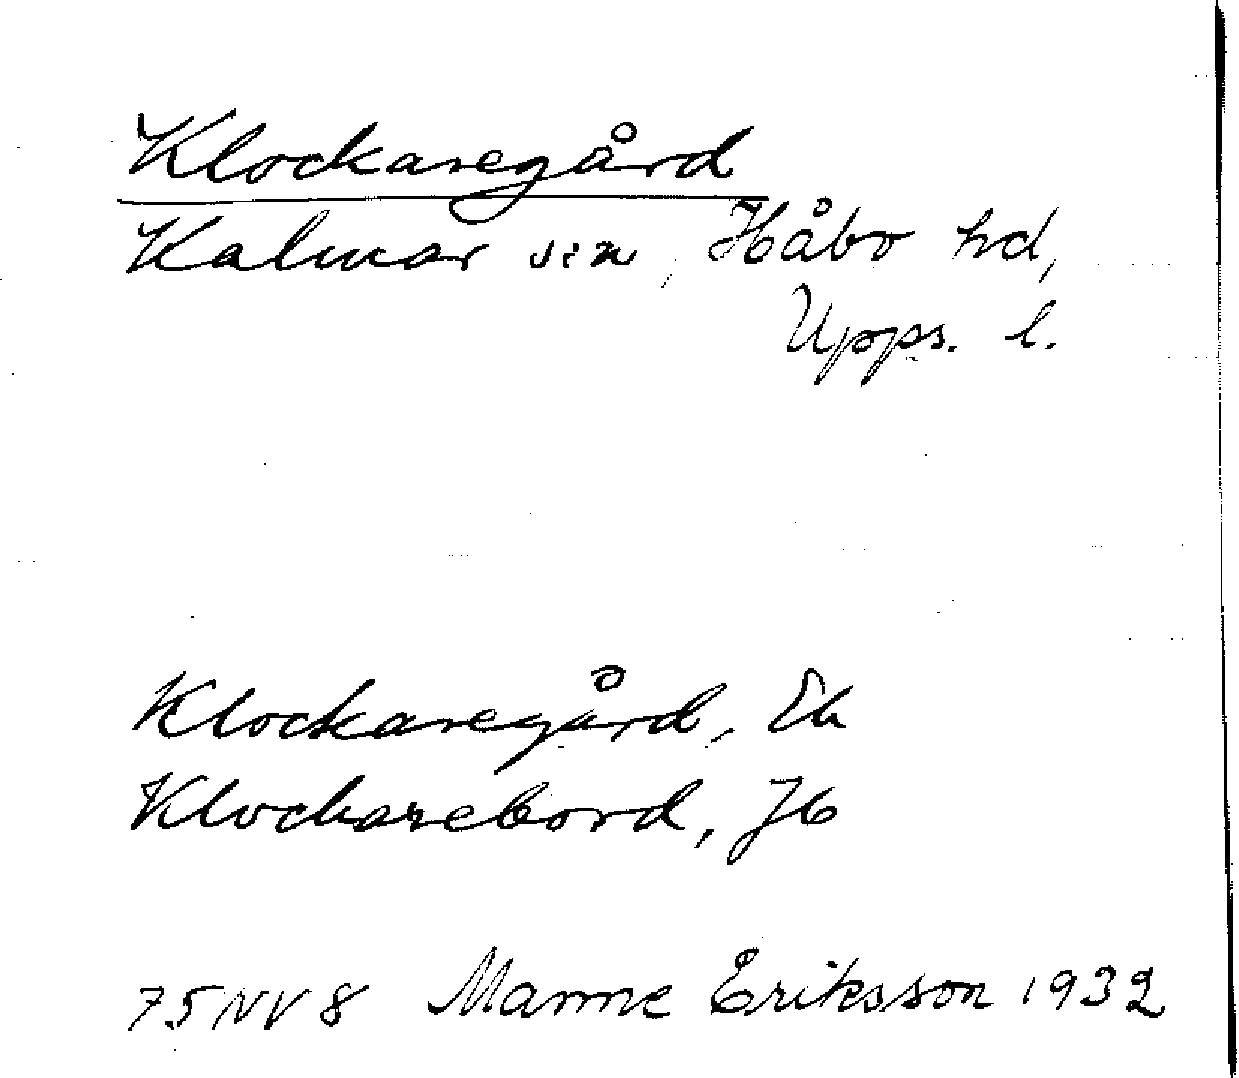 Klockaregård
Kalmar s:n, Håbo hd,
Upps. l.
Klockaregård, Ek
Klockarebord, Jb
75NV8 Manne Eriksson 1932